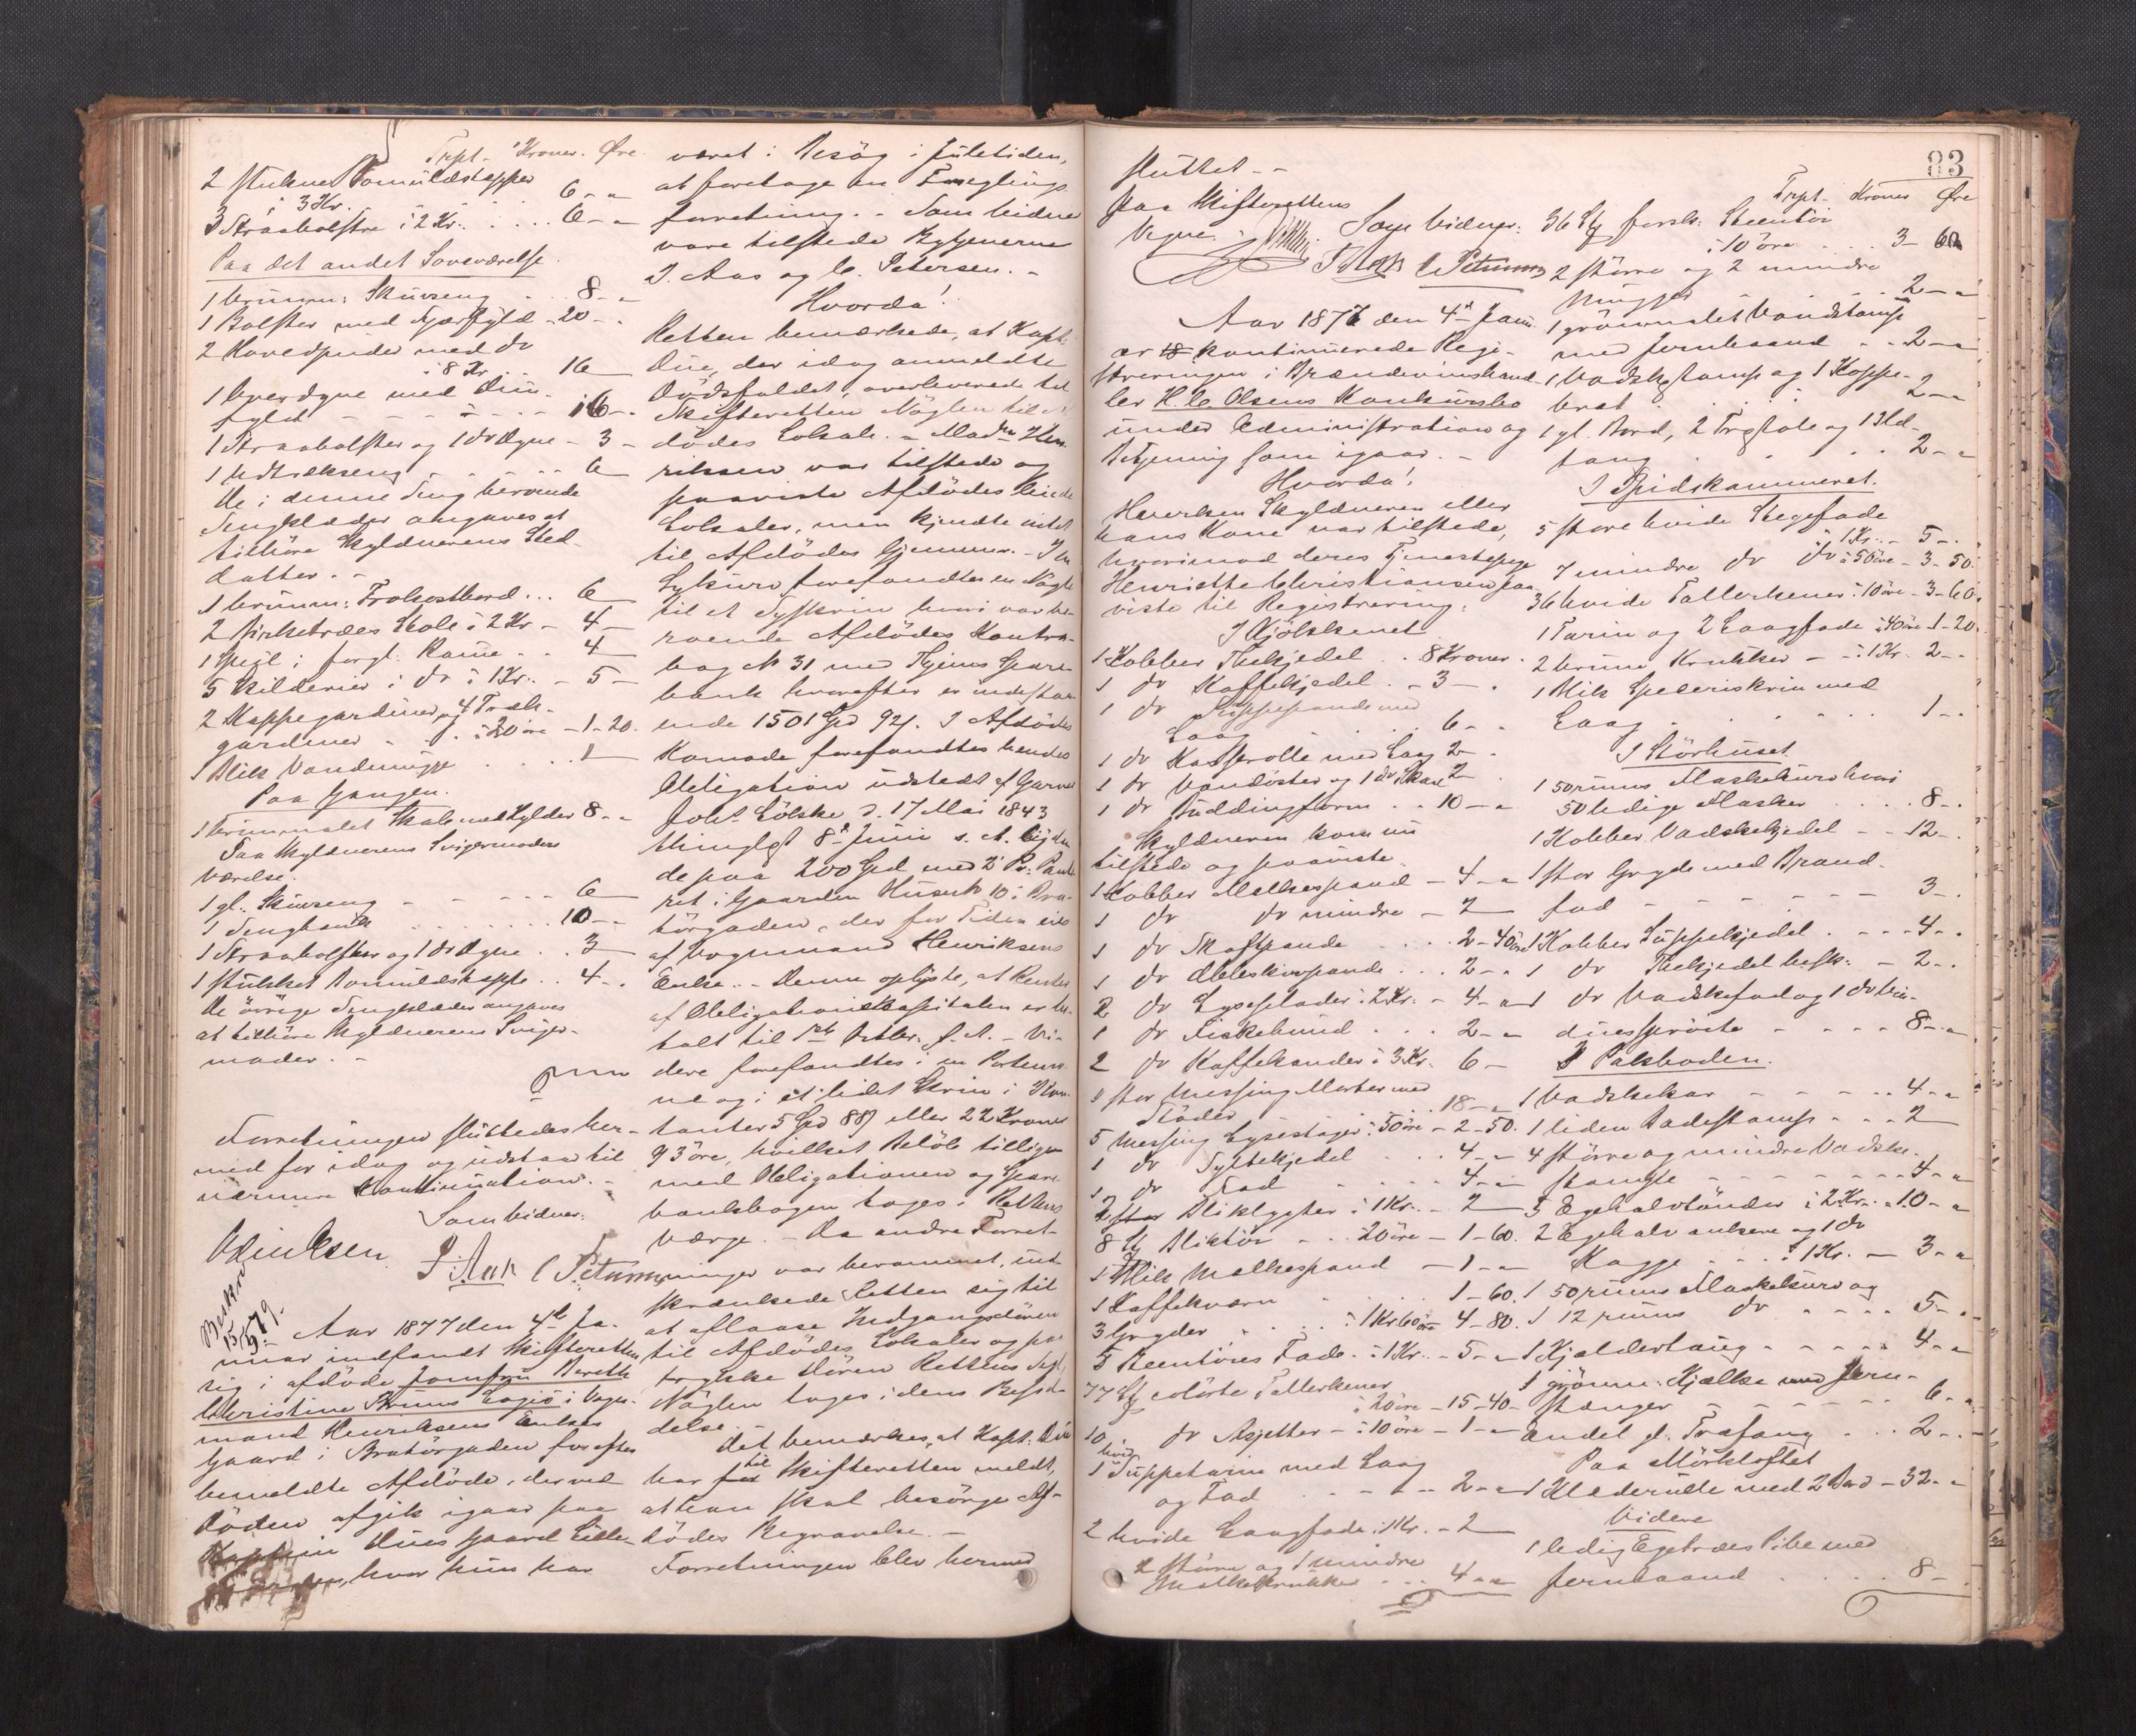 Trpt. Kroner. Øre.
2 stukne Bomuldstepper
à 3 Kr. 6 - "
3 Straabolstre à 2 Kr. . . . . 6 - "
Paa det andet Soveværelse.
1 brunm: Skuvseng . . 8 - "
1 Bolster med Fjærfyld - 20 - "
2 Hovedpuder med do
à 8 Kr. . 16
1 Overdyne med Duun-
fyld - - - - - - 16 - "
1 Straabolster og 1 do Dyne - 3 -
1 Udtrækseng - - - - - 6
De i denne Seng beroende
Sengklæder angaves at
tilhøre Skyldnerens Sted-
datter. -
1 brunm: Frokostbord . . . 6
2 Birketræes Stole à 2 Kr - 4 -
1 Speil i forgl: Rame . . 4
5 Skilderier i do à 1 Kr. - 5 -
2 Kappegardiner og 4 Træk-
gardiner - - à 20 øre - 1 - 20.
1 Blik Vandmugge . . . . 1
Paa Gangen.
1 brunmalet Skab med Hylder 8 - "
Paa Skyldnerens Svigermoders
Værelse.
1 gl. Skuvseng - - - - - 6
1 Sengbænk . . . . . . . 10 - -
1 Straabolster og 1 do Dyne . . 3
1 stukket Bomuldsteppe . . 4 - .
De øvrige Sengklæder angaves
at tilhøre Skyldnerens Sviger-
moder. -
Forretningen sluttedes her-
med for idag og udstaar til
nærmere Kontinuation. -
Som Vidner:
P. Aas C Petersen
Beskr
15/5 79.
Aar 1877 den 4de Ja-
nuar indfandt Skifteretten
sig i afdøde Jomfru Bereth
Christine Bruns Logis i Vogn-
mand Henriksens Enkes
Gaard i Bratørgaden for efter
bemeldte Afdøde, der ved
Døden afgik igaar paa
Kaptein Dues Gaard Lille-
hvor hun har
været i Besøg i Juletiden,
at foretage en Forseglings-
forretning. - Som Vidner
vare tilstede Bytjenerne
P. Aas og C. Petersen. -
Hvorda!
Retten bemærkede, at Kapt:
Due, der idag anmeldte
Dødsfaldet, overleverede til
Skifteretten Nøglen til Af-
dødes Lokale. - Madm Hen-
riksen var tilstede og
paaviste Afdødes leiede
Lokaler, men kjendte intet
til Afdødes Gjemmer. - I en
Sykurv forefandtes en Nøgle
til et Syskrin hvori var be-
roende Afdødes Kontra-
bog No 31 med Thjems Spare-
bank hvorefter er indestaa-
ende 1501 Spd 92 s. I Afdødes
Komode forefandtes hendes
Obligation udstedt af Garver
Joh: Lölske d. 17 Mai 1843
thinglyst 8de Juni s. A. lyden-
de paa 200 Spd med 2' Pr: Pante-
ret i Gaarden Husnr 10 i Bra-
tørgaden, der for Tiden eies
af Vognmand Henriksens
Enke. - Denne oplyste, at Renter
af Obligationskapitalen er be-
talt til 1ste Oktbr. f. A. - Vi-
dere forefandtes i en Portemon-
næ og i et lidet Skrin i Kon-
tanter 5 Spd 88 s eller 22 Kroner
93 øre, hvilket Beløb tilligemed
med Obligationen og Spare-
banksbogen toges i Rettens
Værge. - Da andre Forret-
ninger var berammet, ind-
skrænkede Retten sig til
at aflaase Indgangsdøren
til Afdødes Lokaler og paa-
trykke Døren Rettens Segl,
Nøglen toges i dens Besid-
delse. -
Det bemærkes, at Kapt: Due
har til Skifteretten meldt,
at han skal besørge Af-
dødes Begravelse. -
Forretningen blev hermed
83
sluttet - -
Paa Skifterettens
Vegne. Som Vidner:
P. Aas C Petersen
Aar 1877 den 4de Janu-
ar kontinueredes Regi-
streringen i Brændevinshand-
ler H. C. Olsens Konkursbo
under Administration og
Betjening som igaar. -
Hvorda!
Hverken Skyldneren eller
hans Kone var tilstede,
hvorimod deres Tjenestepige
Henriette Christiansen paa-
viste til Registrering:
I Kjøkkenet
1 Kobber Thekjedel . . 8 Kroner.
1 do Kaffekjedel . - 3 - .
1 do Suppepande med
Laag . . . . . . 6 - "
1 do Kasserolle med Laag 2 -
1 do Vandøster og 1 do Skaal 2 .
1 do Buddingform . . 10 - "
Skyldneren kom nu
tilstede og paaviste.
1 Kobber Melkespand - 4 - "
1 do do mindre - 2
1 do Skaftpande . . . . 2 - 40 øre
1 do Ebleskivepande . . . 2 - "
2 do Lyseplader à 2 Kr. - 4 - "
1 do Fiskebund . . . 2 - "
2 do Kaffekander à 3 Kr. 6 -
1 stor Messing Morter med
Støder . . . . . 18 - "
5 Messing Lysestager à 50 øre - 2 - 50.
1 do Syltekjedel . . . 4 - "
1 do Fad - . . . . 4 - "
2 Bliklygter à 1 Kr. - 2
8 St Bliktøi - . . 20 øre - 1 - 60.
1 Blik Melkespand - 1 - "
1 Kaffekværn . . . . . 1 - 60.
3 Gryder . . . . à 1 Kr 60 øre 4 - 80.
5 Steentøies Fade à 1 Kr. - 5 - "
77 St Tallerkener
à 20 øre - 15 - 40 -
10 do Asjetter - à 10 øre - 1 - "
1 hvid Suppeterin med Laag
og Fad . - - - - 2 - "
2 hvide Laagfade à 1 Kr. - 2
2 større og 1 mindre
Melkekrukker . . . 4 - "
Trpt. Kroner Øre
36 St forsk: Steentøi
à 10 øre . . . 3 - 60
2 større og 2 mindre
Mugger . . . . . 2 - "
1 grønmalet Vandstamp
med Jernbaand - . . 2 - "
1 Vadskestamp og 1 Koppe-
bræt . . . . . . 2 - "
1 gl. Bord, 2 Træstole og 1 Ild-
tang . . . . . . 2 - "
I Spidskammeret.
5 store hvide Stegefade
à 1 Kr. - 5 - .
7 mindre do do à 50 øre - 3 - 50.
36 hvide Tallerkener à 10 øre - 3 - 60.
1 Tarin og 2 Laagfade à 40 øre - 1 - 20.
2 brune Krukker - - à 1 Kr. 2 - .
1 Blik Spederiskrin med
Laag . . . . . . . 1 - .
I Størhuset
1 50 rums Flaskekurv hvori
50 ledige Flasker . . . . 8 - .
1 Kobber Vadskekjedel - - 12 - .
1 stor Gryde med Brand-
fad - - - - - - 3 - .
1 Kobber Suppekjedel . - - - 4 - .
1 do Thekjedel besk: - 2 - .
1 do Vadskefad og 1 do Vin-
duessprøite - - - - 8 - "
I Pakboden.
1 Vadskekar - - - . . 4 - "
1 liden Badestamp - . . 2
4 større og mindre Vadske-
stampe - - - - - - 4 - "
5 Egehalvtønder à 2 Kr - . 10 - "
2 Egehalv ankere og 1 do
Kagge . . . à 1 Kr. - 3 - "
1 50 rums Flaskekurv og
1 12 rums do . . . . 5 - "
1 Kjældertaug - - - - - 4 - "
1 grønm: Kjælke med Jern-
stænger - - - - - - 6 - "
Endel gl. Træfang . . . 2 - .
Paa Mørkloftet
1 Klæderulle med 2 Bord - 32 - "
Videre
1 ledig Egetræes Pibe med
Jernbaand . . . . . 8 - .